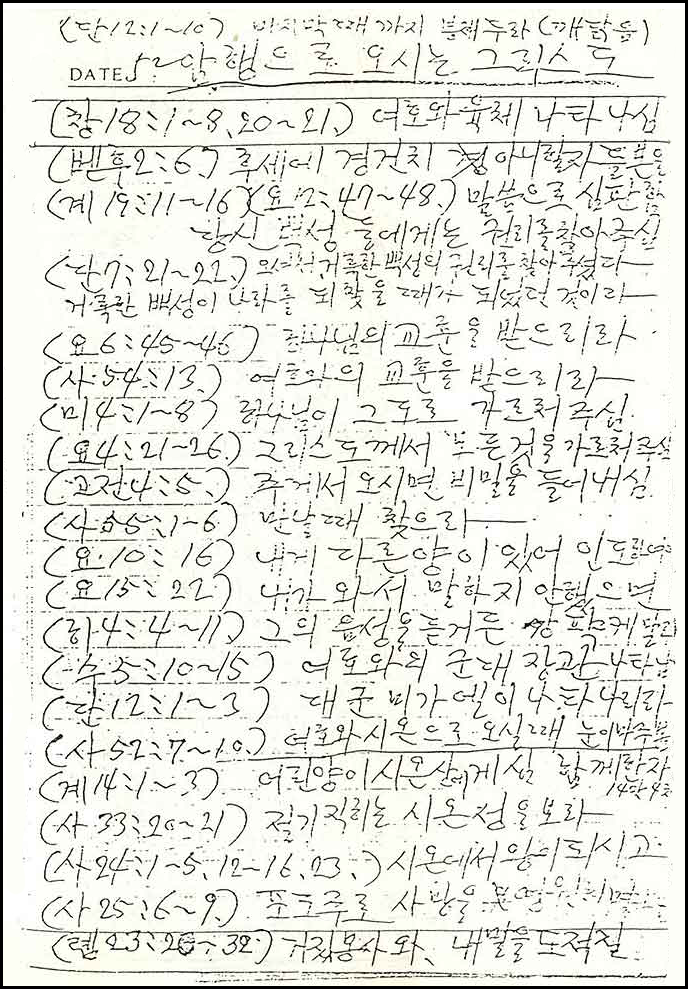 (단12:1~10) 마지막때까지 봉제두라 (깨닫음)
암행으로 오시는 그리스도
DATE
(창18:1~8, 20~21.) 여호와 육체 나타나심
(벧후2:6.) 후세에 경건치 아니할자 들본을
(계19:11~16)(요12:47~48.) 말씀으로 심판함
당신 백성 들에게는 권리를찾아 주심
(단7:21~22.) 거룩한백성의 권리를찾아주셨다
거룩한 백성이 나라를 되찾을 때가 되었던 것이라
(요6:45~46) 하나님의교훈을 받으리라
(사54:13.) 여호와의 교훈을 받으리라
(미4:1~8) 하나님이 그도로 가르쳐주심
(요4:21~26.) 그리스도께서 모든것을가르쳐주심
(고전4:5.) 주께서 오시면 비밀을 들어내심
(사55:1~6) 만날때 찾으라
(요.10:16) 내게 다른양이 있어 인도하여
(요15:22) 내가 와서 말하지 안했으면
(히4:4~11) 그의 음성을듣거든
(수5:10~15) 여호와의 군대 장관 나타남
(단12:1~3) 대군 미가엘이 나타나리라
(사52:7~10.) 여호와시온으로 오실때 눈이마주봄
(계14:1~3) 어린양이시온산에게심 함께한자
14만4천
(사33:20~21) 절기직히는 시온성을보라
(사24:1~5, 12~16, 23.) 시온에서왕이되시고
(사25:6~9.) 포도주로 사망을
(렘23:26~32) 거짓몽사와, 내말을도적질